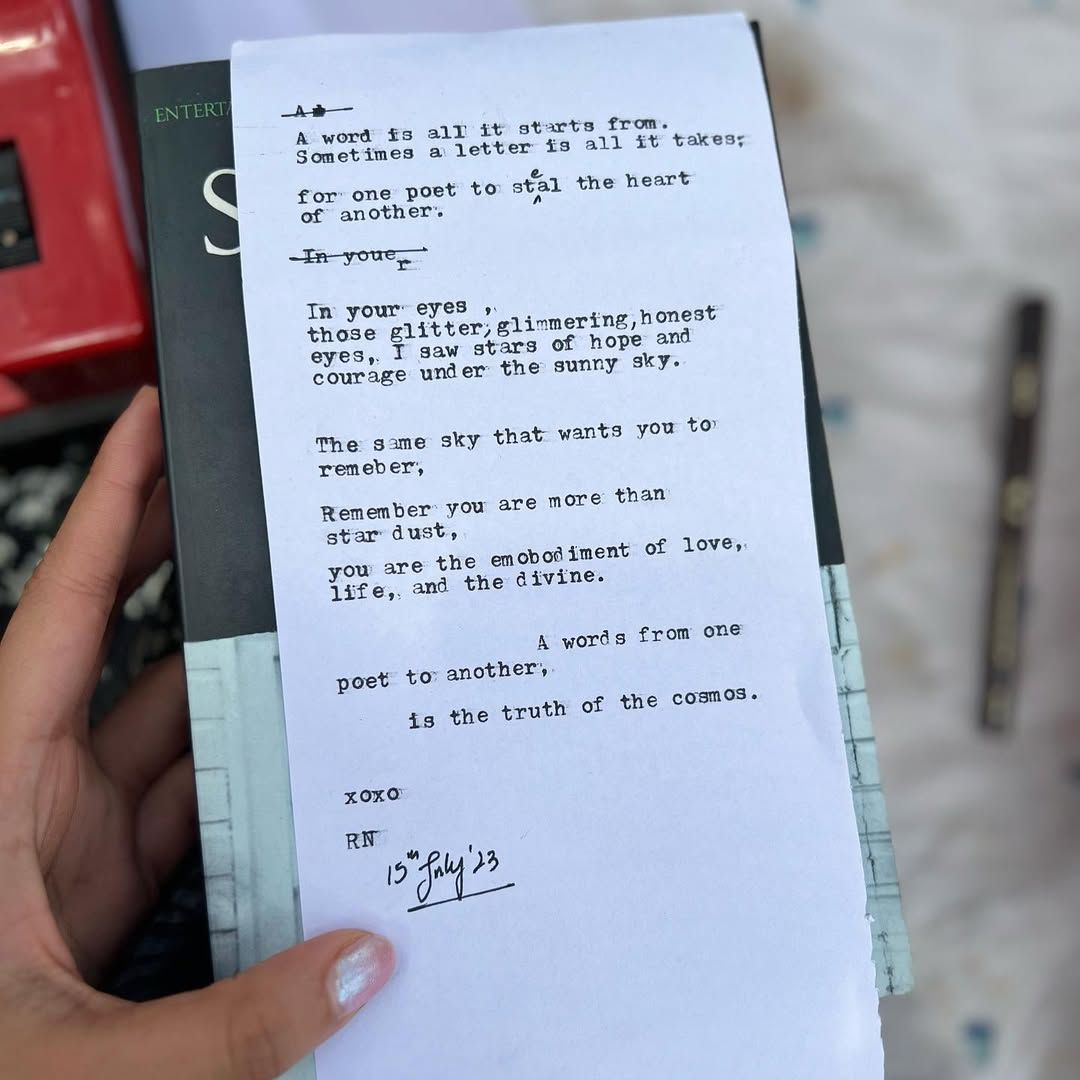 ENTERTA
S
A
A word is all it starts from.
Sometimes a letter is all it takes;
for one poet to steal the heart
of another.
In youe r
In your eyes ,
those glitter, glimmering, honest
eyes, I saw stars of hope and
courage under the sunny sky.
The same sky that wants you to
remeber,
Remember you are more than
star dust,
you are the emobodiment of love,
life, and the divine.
A words from one
poet to another,
is the truth of the cosmos.
xoxo
RN
15th July '23